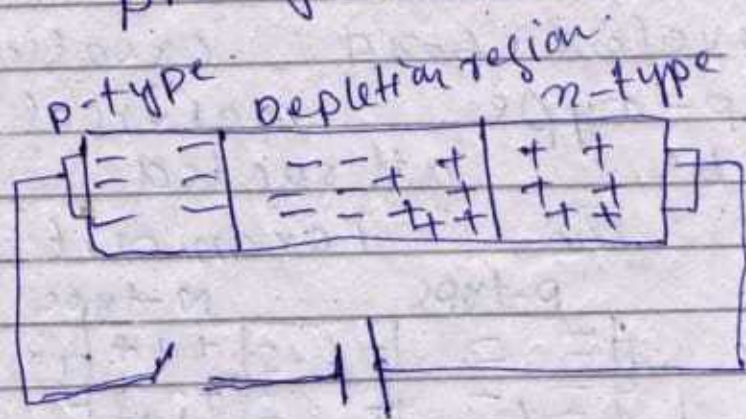 p-type
Depletion region
n-type